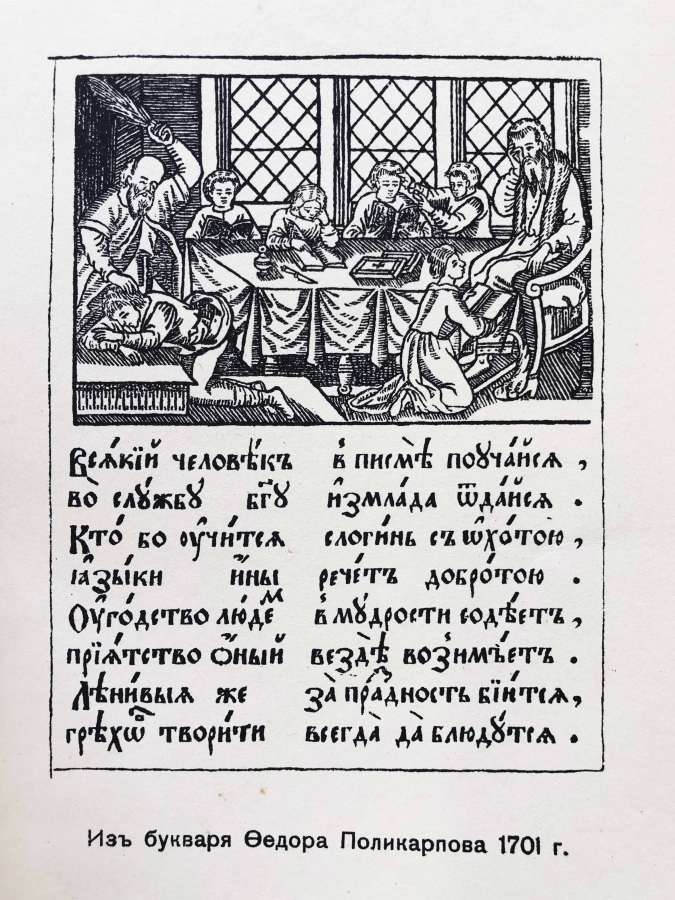 Всѧ́кїй человѣ́къ в̾ писмѣ̀ поꙋча́йсѧ,
во̀ слꙋ́жбꙋ бг҃ꙋ и҆змла́да ѿда́йсѧ.
Кто́ бо оу҆чи́тсѧ слогинь съ ѡ҆хо́тою,
ꙗ҆зы́ки и҆ны рече́тъ добро́тою.
Оу҆го́дство люде́м в̾ мꙋ́дрости содѣ́етъ,
прїѧ́тство ѻ҆́ный вездѣ̀ воз̾имѣ́етъ.
Лѣни́выѧ же за̀ пра́здность бїи́тсѧ,
грѣхѡ́въ твори́ти всегда̀ да̀ блюдꙋ́тсѧ.
Изъ букваря Ѳедора Поликарпова 1701 г.